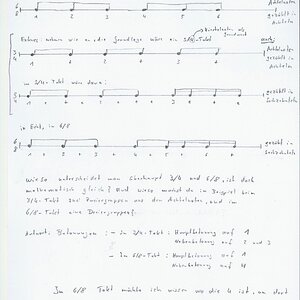 6/8 1 2 3 4 5 6
Achtelnoten gezählt in Achteln
wie wenn die Grundlage wäre ein 3/4-Takt
3/4 1 + 2 + 3 +
Achtelnoten gezählt in Achteln
im 3/4-Takt wäre dann:
3/4 1 + 2 + 3 +
gezählt in
in Echt, im 6/8
6/8 1 + 2 + 3 + 4 + 5 + 6 +
gezählt in Sechzehnteln
Wieso unterscheidet man überhaupt 3/4 und 6/8, ist doch
mathematisch gleich? Und wieso machst du im Beispiel beim
3/4-Takt zwei Zweiergruppen mit den Achtelnoten, und im
6/8-Takt eine Dreiergruppe?
Antwort: Betonungen: - im 3/4-Takt: Hauptbetonung auf 1
Nebenbetonung auf 2 und 3
- im 6/8-Takt: Hauptbetonung auf 1
Nebenbetonung auf 4
Im 6/8 Takt müsste ich wissen wo die 4 ist, um dort